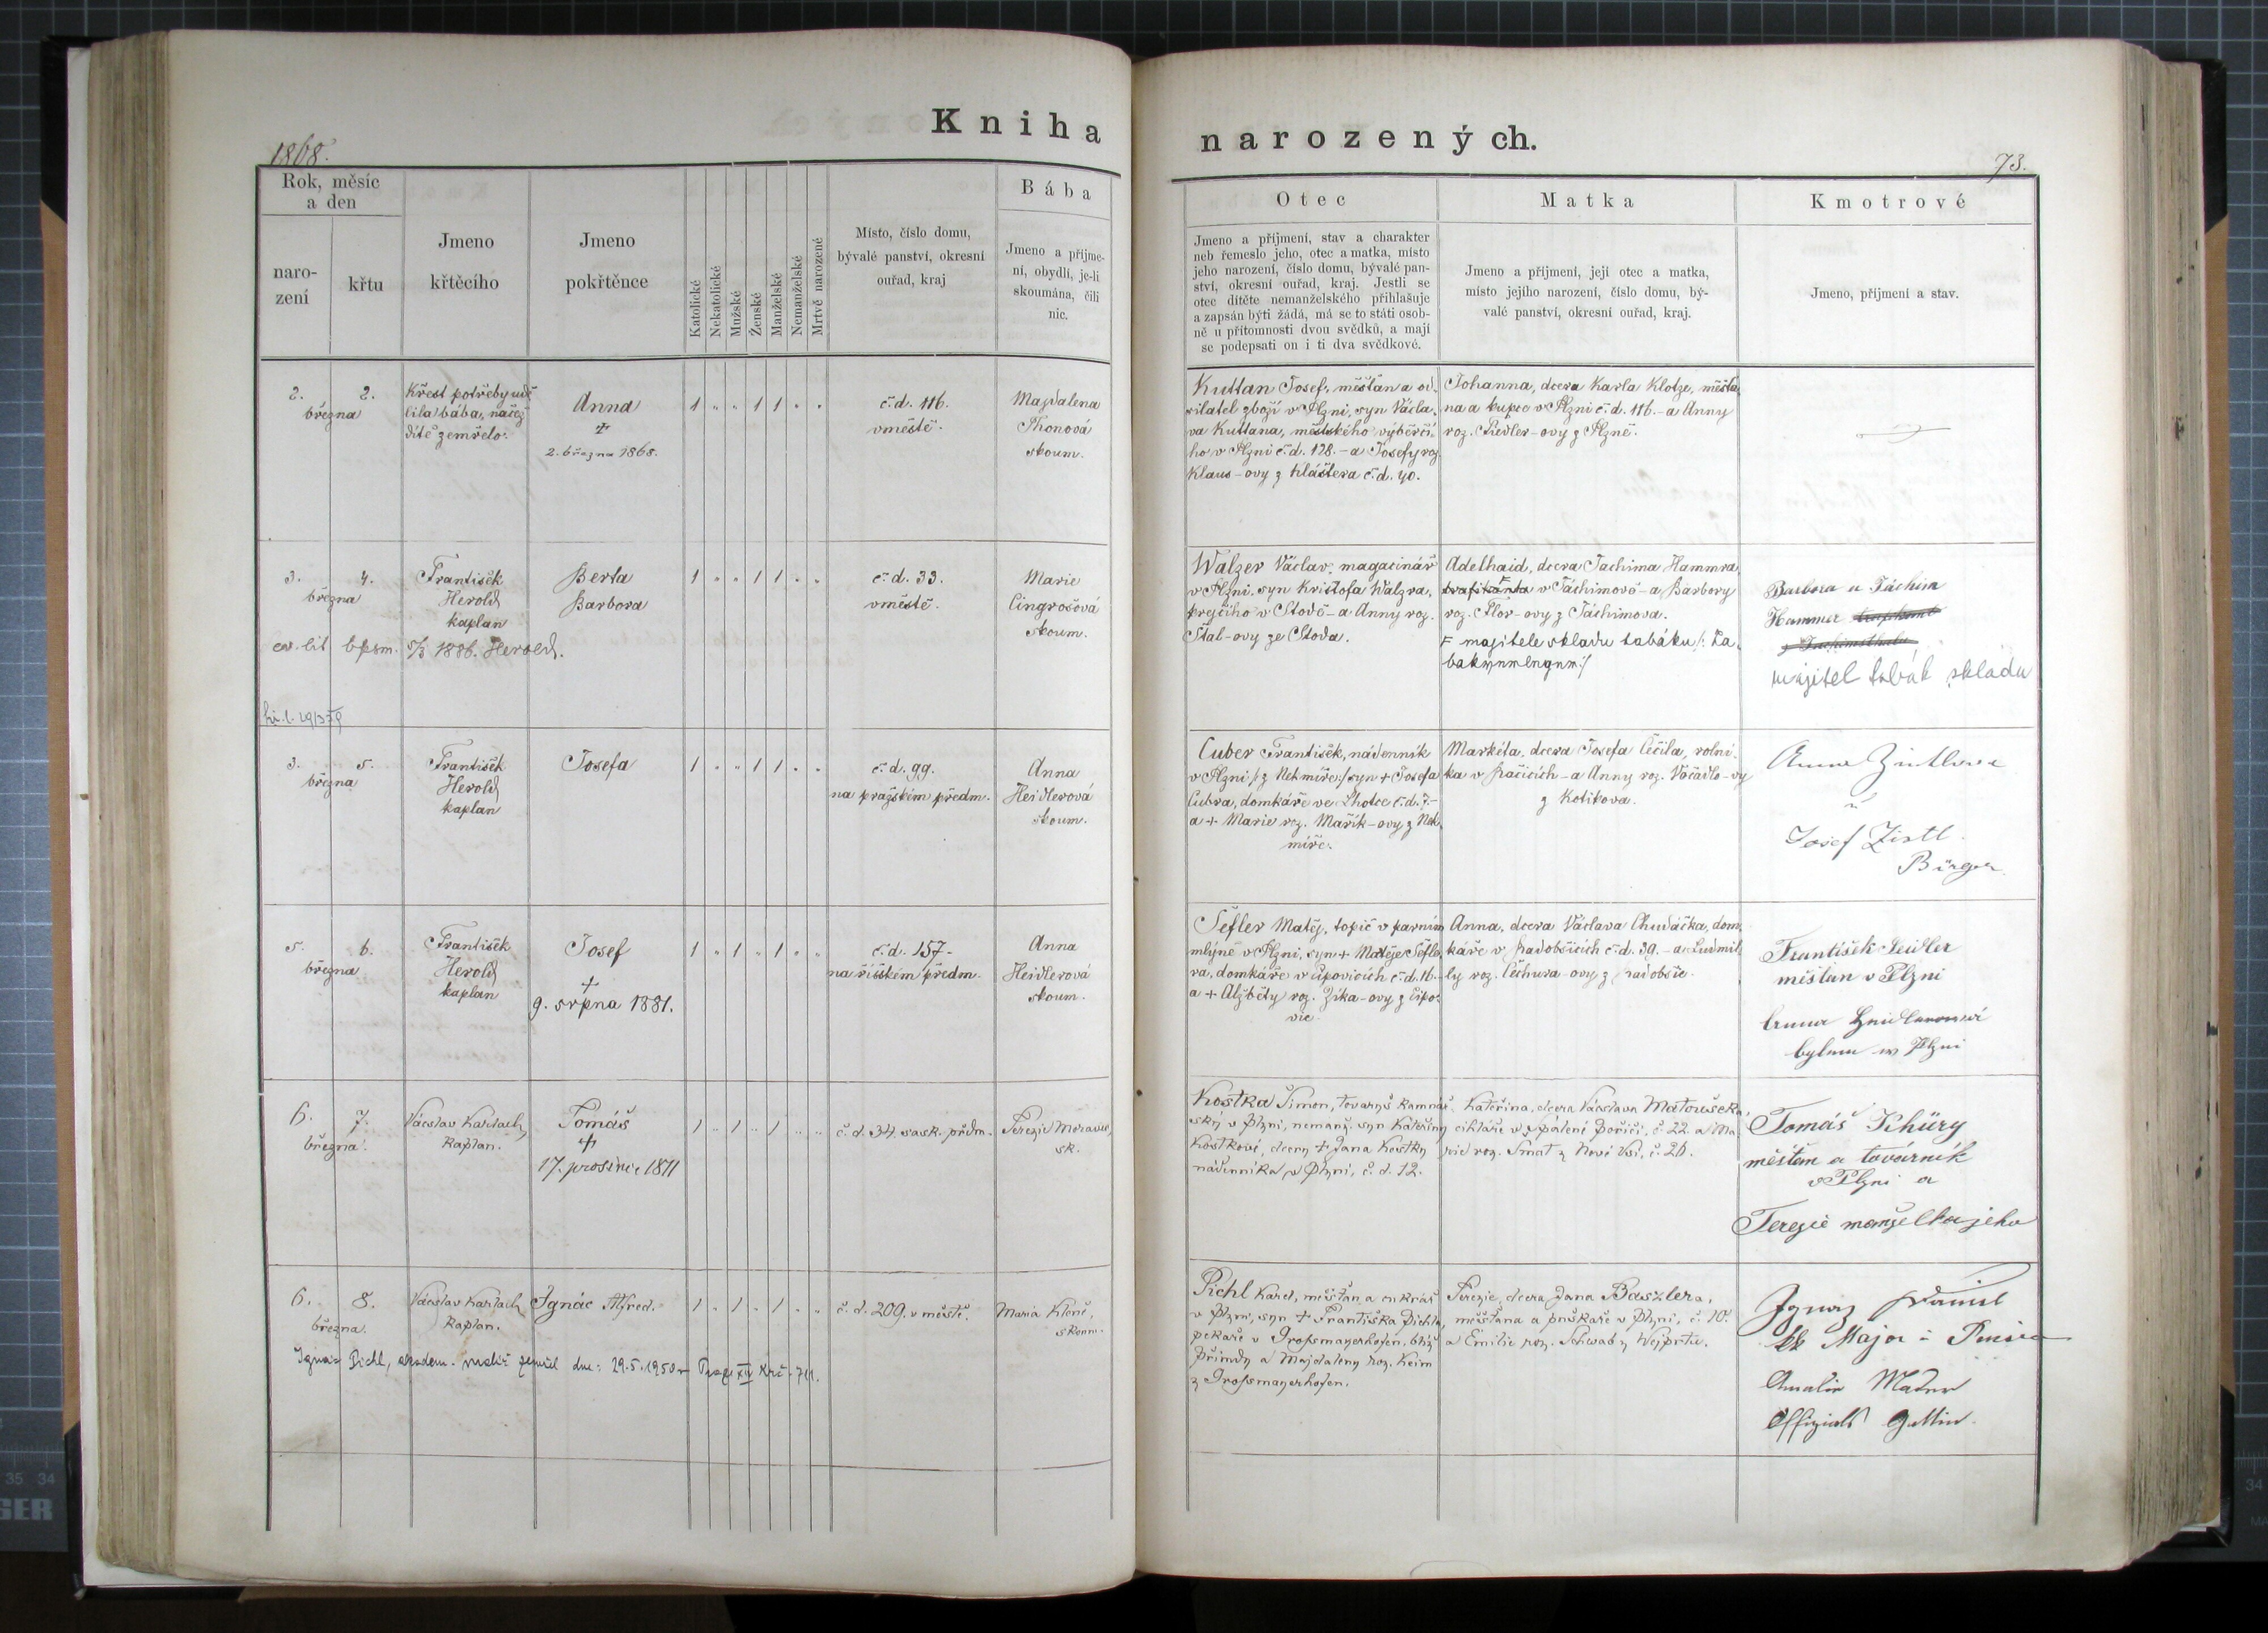 Kniha
narozených.
1868.
73.
Rok, měsíc
a den
naro-
zení
křtu
Jmeno
křtěcího
Jmeno
pokřtěnce
Katolické
Nekatolické
Mužské
Ženské
Manželské
Nemanželské
Mrtvě narozené
Místo, číslo domu,
bývalé panství, okresní
ouřad, kraj
Bába
Jmeno a přijme-
ní, obydlí, je-li
skoumána, čili
nic.
Otec
Jmeno a příjmení, stav a charakter
neb řemeslo jeho, otec a matka, místo
jeho narození, číslo domu, bývalé pan-
ství, okresní ouřad, kraj. Jestli se
otec dítěte nemanželského přihlašuje
a zapsán býti žádá, má se to státi osob-
ně u přítomnosti dvou svědků, a mají
se podepsati on i ti dva svědkové.
Matka
Jmeno a příjmení, její otec a matka,
místo jejího narození, číslo domu, bý-
valé panství, okresní ouřad, kraj.
Kmotrové
Jmeno, příjmení a stav.
2. 2.
března
Křest potřeby udě
lila bába, načež
dítě zemřelo.
Anna
2. března 1868.
1 „ „ 1 1 „ „
č. d. 116.
v městě.
Majdalena
Thonová
skoum.
Kuttan Josef, měšťan a od-
silatel zboží v Plzni, syn Václa-
va Kuttana, městského výběrčí-
ho v Plzni č. d. 128. - a Josefy roz.
Klaus-ovy z Kláštera č. d. 40.
Johanna, dcera Karla Klotze, měšťa-
na a kupce v Plzni č. d. 116. - a Anny
roz. Fiedler-ovy z Plzně.
3. 4.
března
František
Herold
kaplan
Berta
Barbora
1 „ „ 1 1 „ „
č. d. 33.
v městě.
Marie
Cingrošová
skoum.
1886. Herold.
Walzer Václav, magacinář
v Plzni, syn Kristofa Walzra,
krejčího v Stodě - a Anny roz.
Stal-ovy ze Stoda.
Adelhaid, dcera Jachima Hammra,
trafikanta v Jáchimově - a Barbory
roz. Flor-ovy z Jáchimova.
F majitele skladu tabáku /: Ta-
Barbora a Jáchim
Hammer
majitel tabák skladu
3. 5.
března
František
Herold
kaplan
Josefa
1 „ „ 1 1 „ „
č. d. 99.
na pražském předm.
Anna
Heidlerová
skoum.
Cuber František, nádenník
v Plzni /: z Nekmíře :/ syn + Josefa
Cubra, domkáře ve Lhotce č. d. 7. -
a + Marie roz. Mařík-ovy z Nek-
míře.
Markéta, dcera Josefa Čečila, rolní-
ka v Račicích - a Anny roz. Vočadlo-vy
z Kotikova.
Josef Zistl
Bürger
5. 6.
března
František
Herold
kaplan
Josef
+
9. srpna 1881.
1 „ 1 „ 1 „ „
č. d. 157.
na říšském předm.
Anna
Heidlerová
skoum.
Šefler Matěj, topič v parním
mlýně v Plzni, syn + Matěje Šefle-
ra, domkáře v Úpovicích č. d. 16. -
a + Alžběty roz. Zíka-ovy z Čipo-
vic.
Anna, dcera Václava Chudáčka, dom-
káře v Radobčicích č. d. 39. - a Ludmil-
ly roz. Čechura-ovy z Radobčic.
František Seidler
měšťan v Plzni
6. 7.
března.
Václav Karlach,
Kaplan.
Tomáš
17. prosince 1871
1 „ 1 „ 1 „ „
č. d. 34. sask. předm.
Terezie Moravec,
sk.
Kostka Šimon, tovaryš kamnář-
ský v Plzni, nemanž. syn Kateřiny
Kostkové, dcery + Jana Kostky
nádenníka v Plzni, č. d. 12.
Kateřina, dcera Václava Matouška,
cihláře v Spálení Poříčí, č. 22. a Ma-
rie roz. Smat z Nové Vsi, č. 26.
Tomáš
měšťan a továrník
v Plzni a
Terezie manželka jeho
6. 8.
března.
Václav Karlach
Kaplan.
Ignác Alfred.
1 „ 1 „ 1 „ „
č. d. 209. v městě.
Maria Klenč,
skoum.
Ignác Pichl, akadem. malíř zemřel dne: 29.5.1950 v Praze XIV Krč - 711.
Pichl Karel, měšťan a cukrář
v Plzni, syn + Františka Pichla,
pekaře v Großmayerhofen, blíž
Přimdy a Majdaleny roz. Keim
z Großmayerhofen.
Terezie, dcera Jana Baszlera,
měšťana a puškaře v Plzni, č. 10.
a Emilie roz. Schwab z Wejprtu.
kk Major in Pension
Amalie
Offizials Gattin.